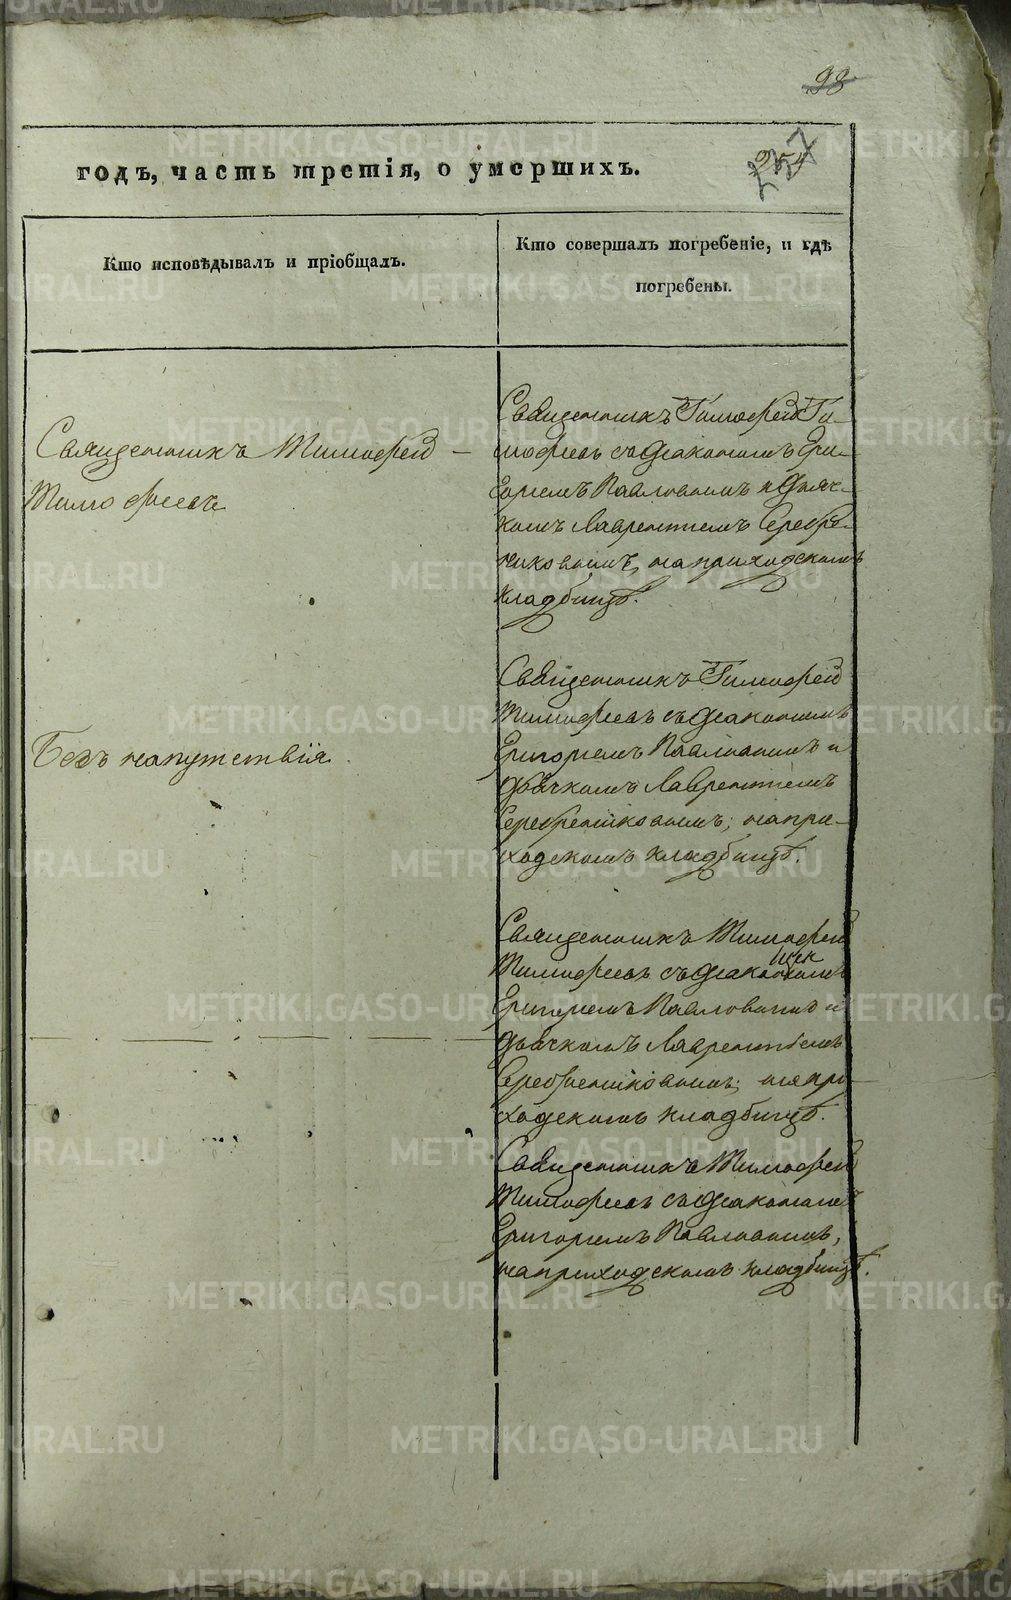 98
257
годъ, часть третія, о умершихъ.
Кто исповѣдывалъ и пріобщалъ.
Кто совершалъ погребеніе, и гдѣ
погребены.
Священникъ Тимофей
Тимофеевъ
Священникъ Тимофей Ти-
мофеевъ съ діакономъ Гри-
горіемъ Павловымъ и дьяч-
комъ Лаврентіемъ Серебре-
никовымъ, на приходскомъ
кладбищѣ.
Безъ напутствія
Священникъ Тимофей
Тимофеевъ съ діакономъ
Григоріемъ Павловымъ и
дьячкомъ Лаврентіемъ
Серебрениковымъ, на при-
ходскомъ кладбищѣ.
Священникъ Тимофей
Тимофеевъ съ діакономъ
Григоріемъ Павловымъ и
дьячкомъ Лаврентіемъ
Серебрениковымъ, на при-
ходскомъ кладбищѣ.
Священникъ Тимофей
Тимофеевъ съ діакономъ
Григоріемъ Павловымъ,
на приходскомъ кладбищѣ.
METRIKI.GASO-URAL.RU